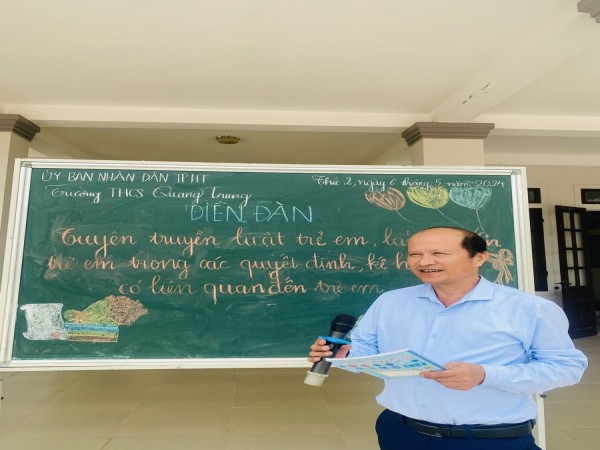 ỦY BAN NHÂN DÂN TP.HT
Trường THCS Quang Trung
Thứ 2, ngày 6 tháng 5 năm 2024
DIỄN ĐÀN
Tuyên truyền luật trẻ em, lấ
trẻ em trong các quyết định, kế h
có liên quan đến trẻ em